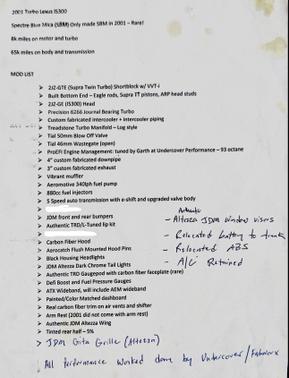 2001 Turbo Lexus IS300
Spectre Blue Mica (SBM) Only made SBM in 2001 – Rare!
8k miles on motor and turbo
65k miles on body and transmission
MOD LIST
• 2JZ-GTE (Supra Twin Turbo) Shortblock w/ VVT-i
• Built Bottom End – Eagle rods, Supra TT pistons, ARP head studs
• 2JZ-GE (IS300) Head
• Precision 6266 Journal Bearing Turbo
• Custom fabricated intercooler + intercooler piping
• Treadstone Turbo Manifold – Log style
• Tial 50mm Blow Off Valve
• Tial 46mm Wastegate (open)
• ProEFI Engine Management: tuned by Garth at Undercover Performance – 93 octane
• 4" custom fabricated downpipe
• 3" custom fabricated exhaust
• Vibrant muffler
• Aeromotive 340lph fuel pump
• 880cc fuel injectors
• 5 Speed auto transmission with e-shift and upgraded valve body
• JDM front and rear bumpers
• Authentic TRD/L-Tuned lip kit
• Carbon Fiber Hood
• Aerocatch Flush Mounted Hood Pins
• Black Housing Headlights
• JDM Altezza Dark Chrome Tail Lights
• Authentic TRD Gaugepod with carbon fiber faceplate (rare)
• Defi Boost and Fuel Pressure Gauges
• ATX Wideband, will include AEM wideband
• Painted/Color Matched dashboard
• Real carbon fiber trim on air vents and shifter
• Arm Rest (2001 did not come with arm rest)
• Authentic JDM Altezza Wing
• Tinted rear half – 5%
Authentic
- Altezza JDM Window visors
- Relocated battery to trunk
- Relocated ABS
- A/C Retained
> JDM Gita Grille (Altezza)
All Performance Worked done by Undercover/